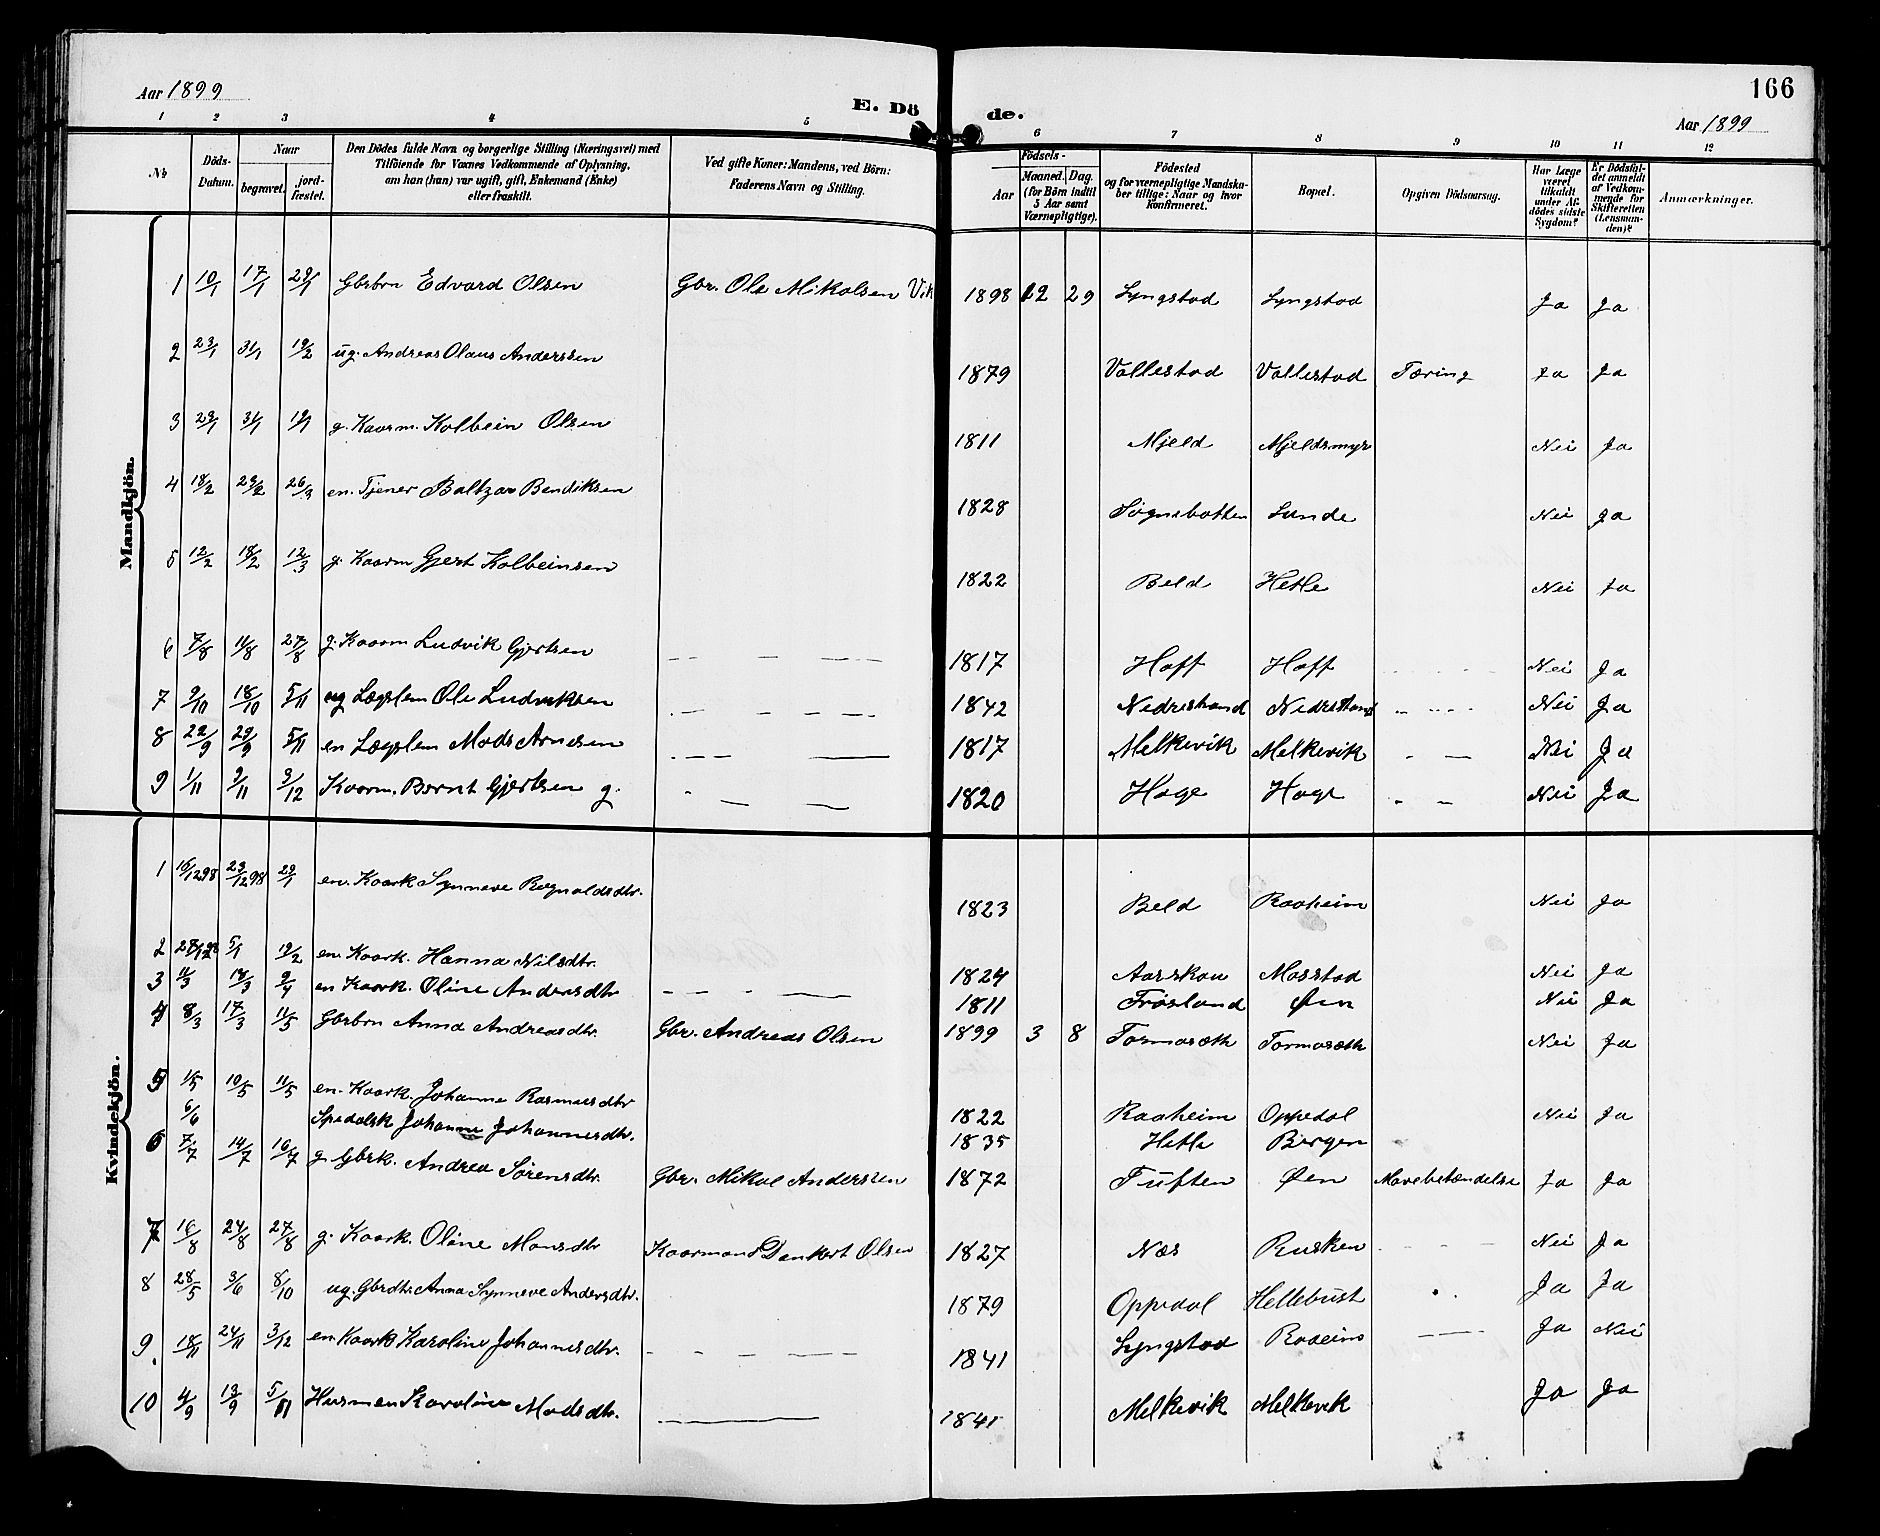 166
Aar 1899
E. Dö de.
Aar 1899
1 2 3 4 5 6 7 8 9 10 11 12
No
Döds-Datum.
Naar
begravet.
jord-fæstet.
Den Dödes fulde Navn og borgerlige Stilling (Næringsvei) med
Tilföiende for Voxnes Vedkommende af Oplysning.
om han (hun) var ugift, gift, Enkemand (Enke)
eller fraskilt.
Ved gifte Koner: Mandens, ved Börn:
Faderens Navn og Stilling.
Födsels-
Aar
Maaned. Dag.
(for Börn indtil
5 Aar samt
Værnepligtige).
Födested
og for værnepligtige Mandska-
ber tillige: Naar og hvor
konfirmeret.
Bopæl.
Opgiven Dödsaarsag.
Har Læge
været
tilkaldt
under Af-
dödes sidste
Sygdom?
Er Dödsfal-
det anmeldt
af Vedkom-
mende for
Skifteretten
(Lensman-
den)?
Anmærkninger.
Mandkjön.
1 10/1 17/1 29/1 Gbrbrn Edvard Olsen Gbr. Ole Mikalsen Vik 1898 12 29 Lyngstad Lyngstad Ja Ja
2 23/1 31/1 19/2 ug. Andreas Olaus Anderssen 1879 Vallestad Vallestad Tæring Ja Ja
3 29/1 31/1 19/1 g. Kaarm. Kolbein Olsen 1811 Mjeld Mjeldsmyr Nei Ja
4 18/2 23/2 26/3 en. Tjener Baltzar Bendiksen 1828 Sognebotten Lunde Nei Ja
5 12/2 18/2 12/3 g. Kaarm Gjert Kolbeinsen 1822 Beld Hetle Nei Ja
6 7/8 11/8 27/8 g. Kaarm Ludvik Gjertsen 1817 Hoff Hoff Nei Ja
7 9/10 18/10 5/11 ug Lægslem Ole Ludviksen 1842 Nedrestrand Nedrestrand Nei Ja
8 22/9 29/9 5/11 en Lægslem Mads Arnesen 1817 Melkevik Melkevik Nei Ja
9 1/11 9/11 3/12 Kaarm. Bernt Gjertsen g. 1820 Hage Hage Nei Ja
Kvindekjön.
1 16/12 98 23/12 98 29/1 en. Kaark Synneve Ragnaldsdtr. 1823 Beld Raaheim Nei Ja
2 28/12 98 5/1 19/2 en. Kaark. Hanna Nilsdtr. 1824 Aarskau Masstad Nei Ja
3 11/3 18/3 9/4 en Kaark. Oline Andersdtr 1811 Frøsland Øen Nei Ja
4 8/3 17/3 11/5 Gbrbrn Anna Andreasdtr. Gbr. Andreas Olsen 1899 3 8 Tormaseth Tormaseth Nei Ja
5 1/5 10/5 11/5 en. Kaark. Johanne Rasmusdtr 1822 Raaheim Oppedal Nei Ja
6/6 Spedalsk Johanne Johannesdtr. 1835 Hetle Bergen
6 7/7 14/7 16/7 g. Gbrk. Andrea Sörensdtr. Gbr. Mikal Anderssen 1872 Tuften Øen Mavebetændelse Ja Ja
7 16/8 24/8 27/8 g. Kaark. Oline Monsdtr Kaarmand Dankert Olsen 1827 Næs Rusken Nei Ja
8 28/5 3/6 8/10 ug. Gbrdtr. Anna Synneve Andersdtr. 1879 Oppedal Hellebust Ja Ja
9. 18/11 24/11 3/12 en Kaark Karoline Johannesdtr. 1841 Lyngstad Ja Nei
10 4/9 13/9 5/11 Husmen Karoline Madsdtr. 1841 Melkevik Melkevik Ja Ja